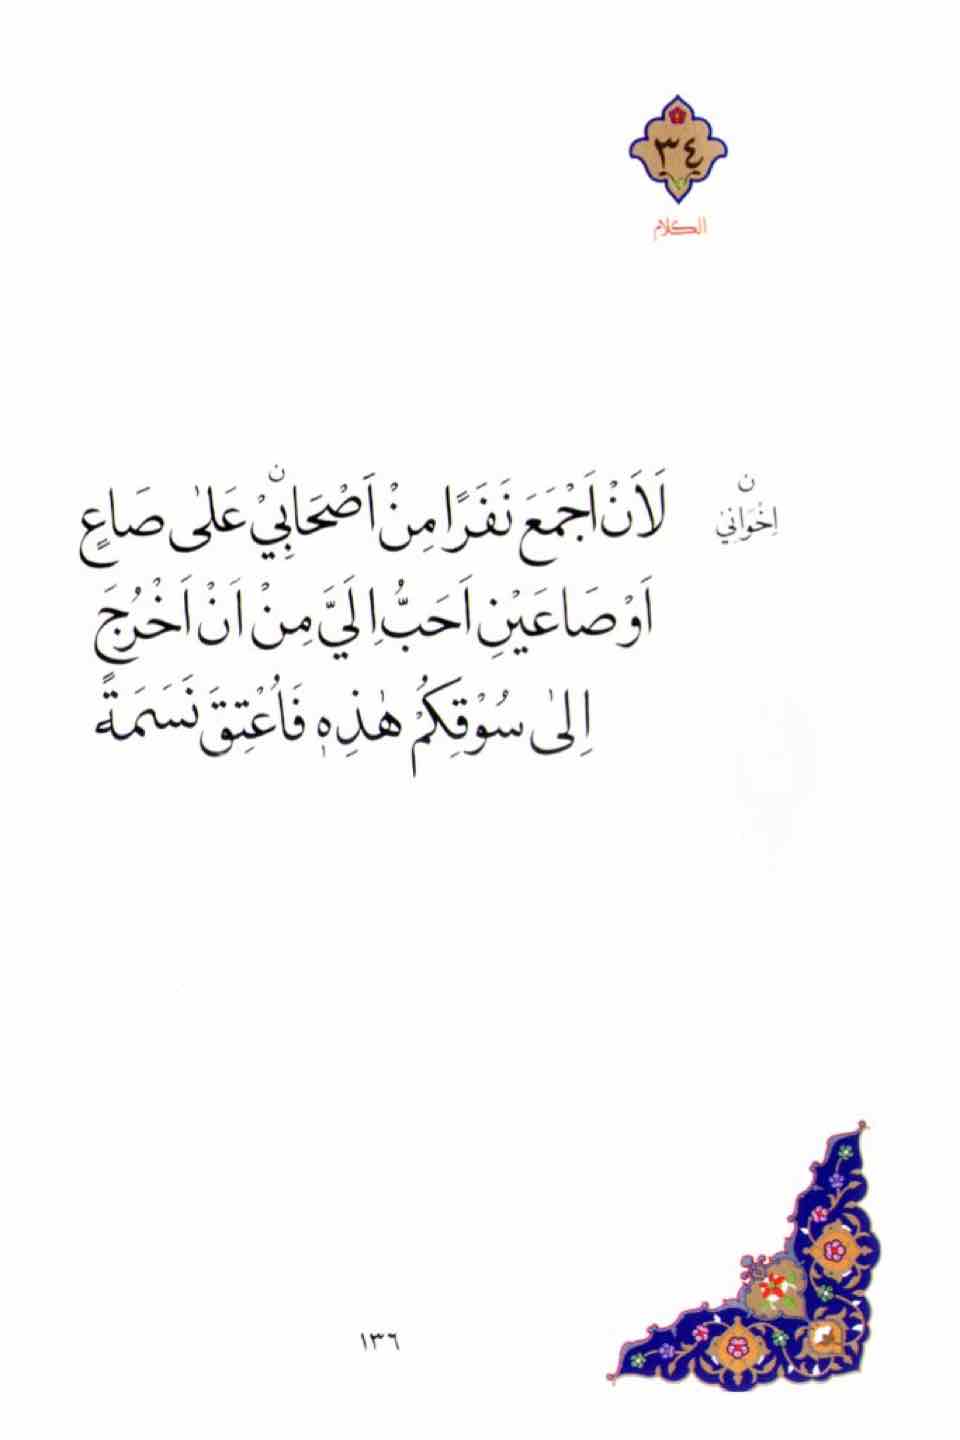 ٣٤
الكلام
لَاَنْ اَجْمَعَ نَفَرًا مِنْ اَصْحَابِيْ عَلٰى صَاعٍ
ن
اِخْوَانِيْ
ن
اَوْ صَاعَيْنِ اَحَبُّ اِلَيَّ مِنْ اَنْ اَخْرُجَ
اِلٰى سُوْقِكُمْ هٰذِهٖ فَاُعْتِقَ نَسَمَةً
١٣٦